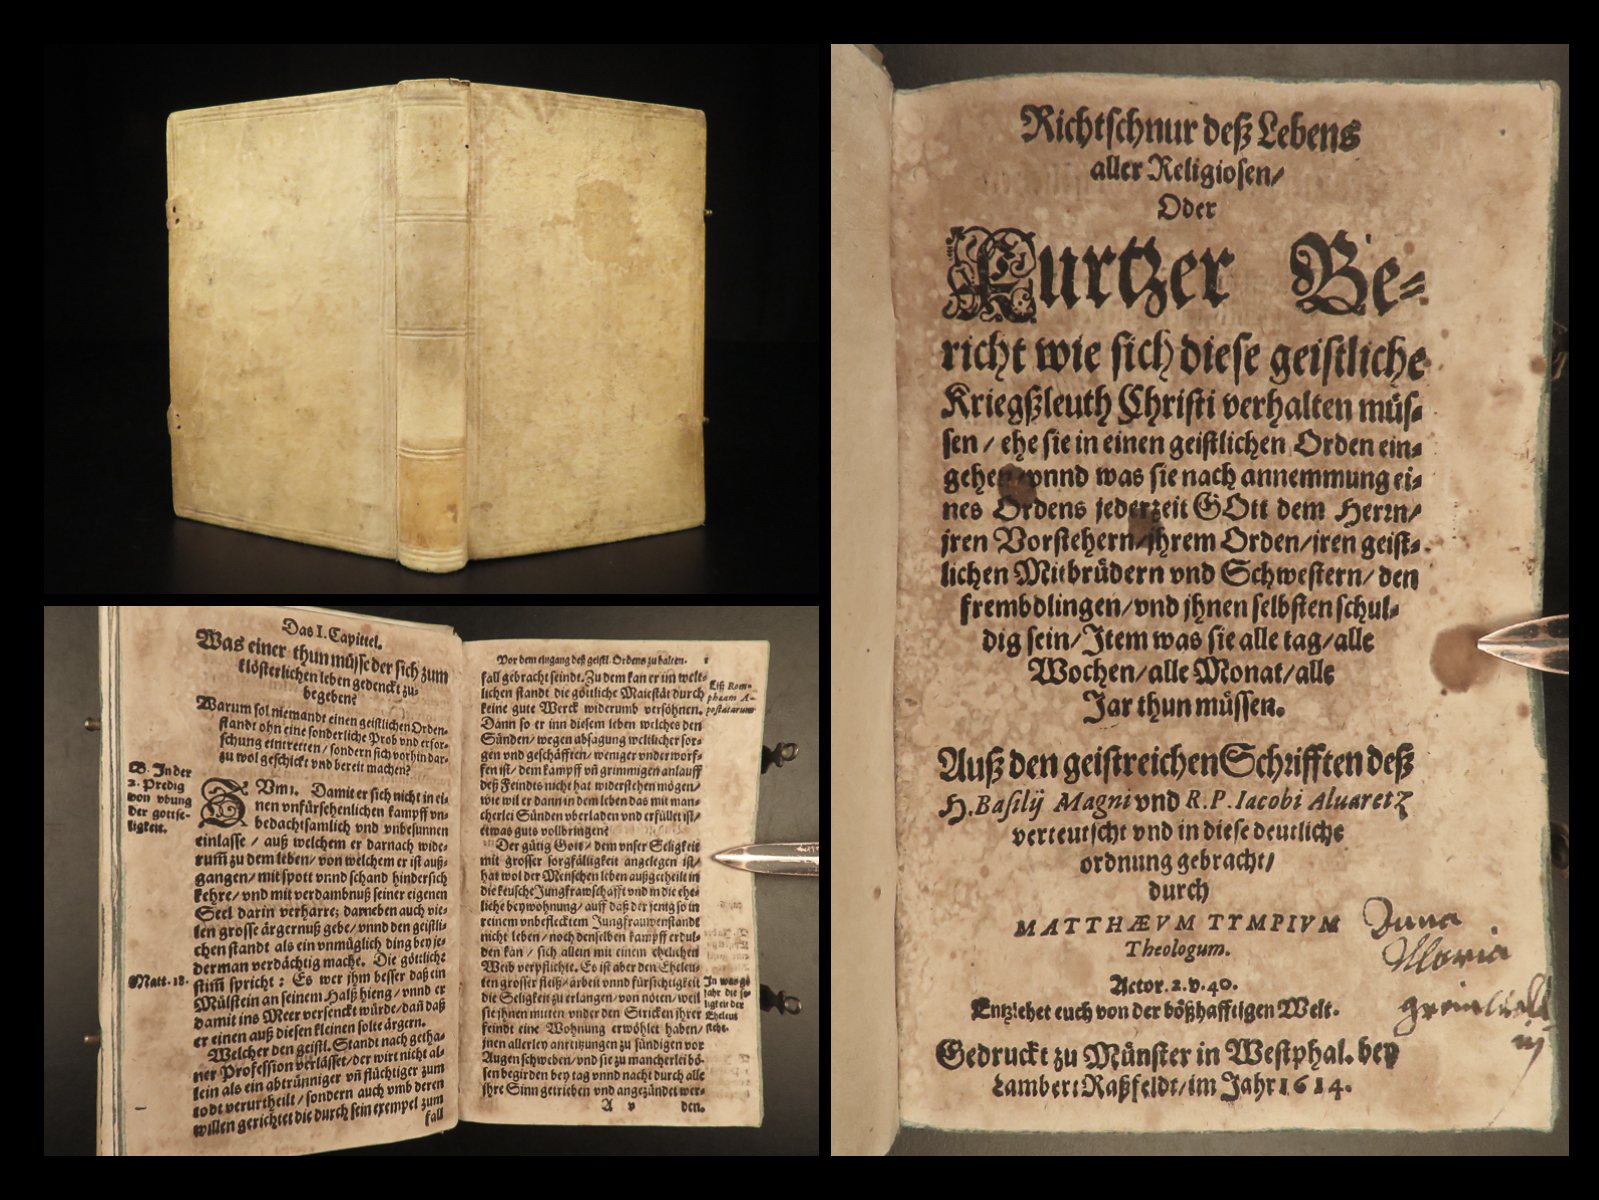 Das I. Capittel.
Was einer thun müsse der sich zum
klösterlichen leben gedenckt zu-
begeben?
Warum sol niemandt einen geistlichen Orden-
standt ohn eine sonderliche Prob vnd erfor-
schung eintretten / sondern sich vorhin dar-
zu wol geschickt vnd bereit machen?
B. In der
2. Predig
von vbung
der gottse-
ligkeit.
Vm 1. Damit er sich nicht in ei-
nen vnfürsehenlichen kampff vn-
bedachtsamlich vnd vnbesunnen
einlasse / auß welchem er darnach wide-
rum̃ zu dem leben / von welchem er ist auß-
gangen / mit spott vnnd schand hindersich
kehre / vnd mit verdambnuß seiner eigenen
Seel darin verharre; darneben auch vie-
len grosse ärgernuß gebe / vnnd den geistli-
chen standt als ein vnmüglich ding bey je-
derman verdächtig mache. Die göttliche
Matt. 18.
stim̃ spricht: Es wer jhm besser daß ein
Mülstein an seinem Halß hieng / vnnd er
damit ins Meer versenckt würde / dañ daß
er einen auß diesen kleinen solte ärgern.
Welcher den geistl. Standt nach getha-
ner Profession verlässet / der wirt nicht al-
lein als ein abtrünniger vñ flüchtiger zum
todt verurtheilt / sondern auch vmb deren
willen gerichtet die durch sein exempel zum
fall
Vor dem eingang deß geistl. Ordens zu halten.
fall gebracht seindt. Zu dem kan er im welt-
lichen standt die göttliche Maiestät durch
keine gute Werck widerumb versöhnen.
Dann so er inn diesem leben welches den
Sünden / wegen absagung weltlicher sor-
gen vnd geschäfften / weniger vnderworf-
fen ist / dem kampff vñ grimmigen anlauff
deß Feindts nicht hat widerstehen mögen /
wie wil er dann in dem leben das mit man-
cherley Sünden vberladen vnd erfüllet ist /
etwas guts vollbringen?
Der gütig Gott / dem vnser Seligkeit
mit grosser sorgfältigkeit angelegen ist /
hat wol der Menschen leben außgetheilt in
die keusche Jungfrawschafft vnd in die ehe-
liche beywohnung / auff daß der jenig so in
reinem vnbeflecktem Jungfrauwenstandt
nicht leben / noch denselben kampff erdul-
den kan / sich allein mit einem ehelichen
Weib verpflichte. Es ist aber den Ehelen-
ten grosser fleiß / arbeit vnnd fürsichtigkeit
die Seligkeit zu erlangen / von nöten / weil
sie jhnen mitten vnder den Stricken jhrer
feindt eine Wohnung erwöhlet haben /
jnen allerley anreitzungen zu sündigen vor
Augen schweben / vnd sie zu mancherlei bö-
sen begirden bey tag vnnd nacht durch alle
jhre Sinn getrieben vnd angezündet wer-
A v den.
Richtschnur deß Lebens
aller Religiosen /
Oder
Kurtzer Be-
richt wie sich diese geistliche
Kriegßleuth Christi verhalten müs-
sen / ehe sie in einen geistlichen Orden ein-
gehen vnnd was sie nach annemmung ei-
nes Ordens jederzeit GOtt dem Herrn /
jren Vorstehern / jhrem Orden / jren geist-
lichen Mitbrüdern vnd Schwestern / den
frembdlingen / vnd jhnen selbsten schul-
dig sein / Item was sie alle tag / alle
Wochen / alle Monat / alle
Jar thun müssen.
Auß den geistreichen Schrifften deß
H. Basilij Magni vnd R. P. Iacobi Aluaretz
verteutscht vnd in diese deutliche
ordnung gebracht /
durch
MATTHÆVM TYMPIVM
Theologum.
Actor. 2. v. 40.
Entziehet euch von der bößhafftigen Welt.
Gedruckt zu Münster in Westphal. bey
Lambert Raßfeldt / im Jahr 1614.
Maria